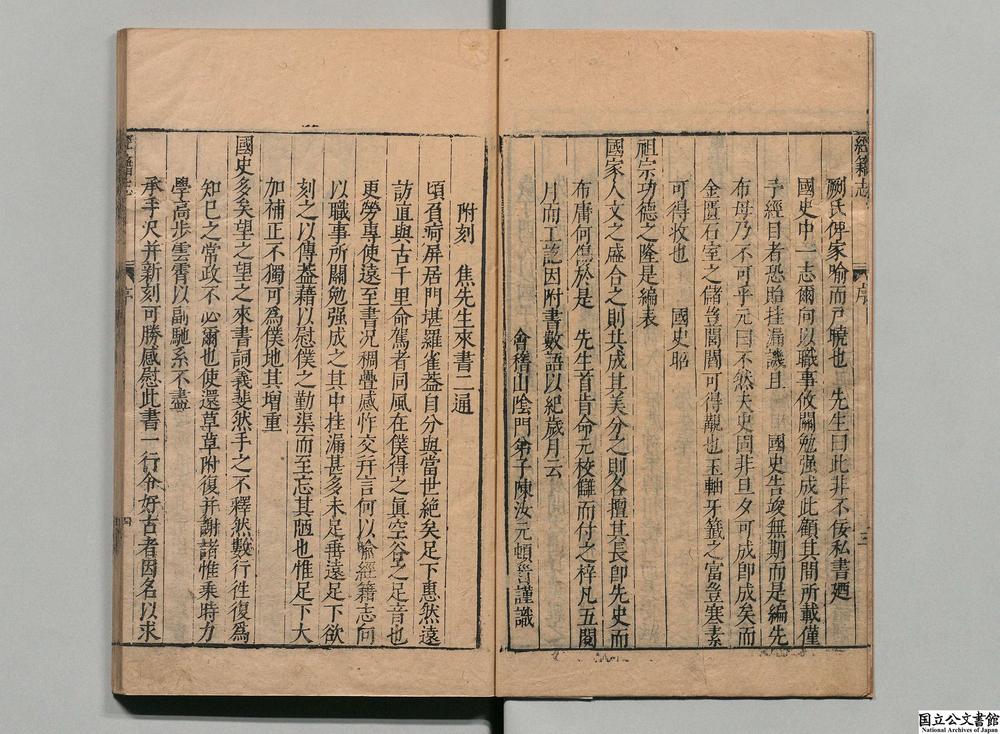 經籍志 序 三
劂氏俾家喻而戶曉也 先生曰此非不佞私書廼
國史中一志爾向以職事攸關勉强成此顧其間所載僅
予經目者恐貽挂漏譏且 國史告竣無期而是編先
布毋乃不可乎元曰不然夫史固非旦夕可成卽成矣而
金匱石室之儲豈閭閻可得覩也玉軸牙籤之富豈寒素
可得攷也 國史昭
祖宗功德之隆是編表
國家人文之盛合之則共成其美分之則各擅其長卽先史而
布庸何傷於是 先生首肯命元校讎而付之梓凡五閱
月而工訖因附書數語以紀歲月云
會稽山陰門弟子陳汝元頓首謹識
附刻 焦先生來書二通
頃負痾屏居門堪羅雀葢自分與當世絶矣足下惠然遠
訪直與古千里命駕者同風在僕得之眞空谷之足音也
更勞專使遠至書况稠疊感怍交幷言何以喻經籍志向
以職事所關勉强成之其中挂漏甚多未足垂遠足下欲
刻之以傳葢藉以慰僕之勤渠而至忘其陋也惟足下大
加補正不獨可爲僕地其增重
國史多矣望之望之來書詞義斐然手之不釋然數行徃復爲
知巳之常政不必爾也使還草草附復幷謝諸惟乘時力
學高步雲霄以副馳系不盡
承手尺幷新刻可勝感慰此書一行令好古者因名以求
經籍志 序 四
国立公文書館
National Archives of Japan